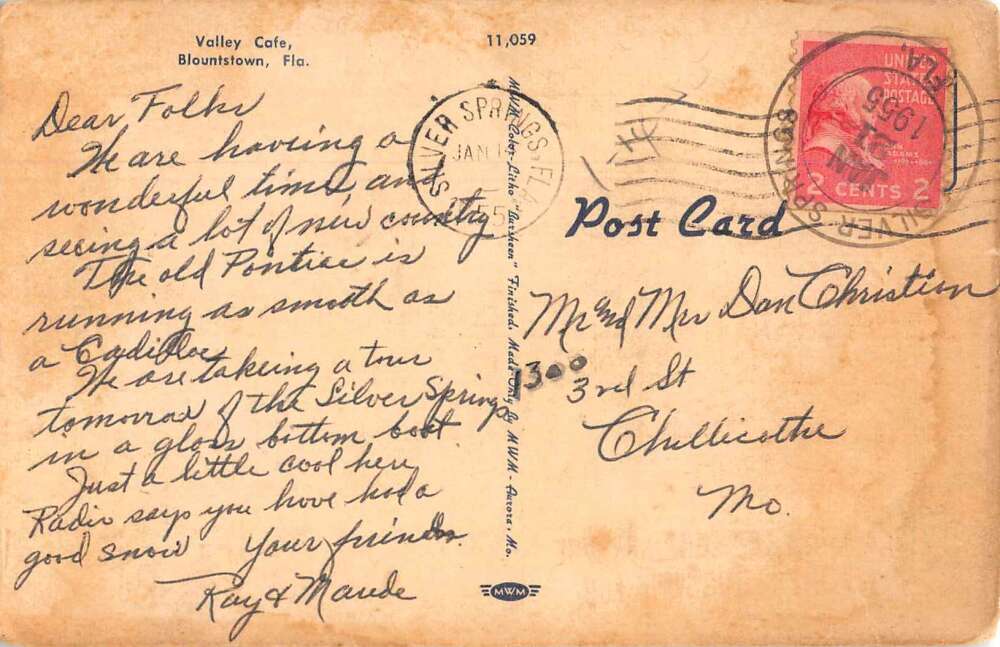 Valley Cafe,
Blountstown, Fla.
11,059
Dear Folks
We are having a
wonderful time and
seeing a lot of new country
The old Pontiac is
running as smooth as
a Cadillac
We are takeing a tour
tomorrow of the Silver Springs
in a glass bottom boat
Just a little cool here
Radio says you have had a
good snow your friends
Ray & Maude
MWM Color-Litho "Aursheen" Finished, Made Only By MWM - Aurora, Mo.
MWM
SILVER SPRINGS, FLA
JAN 1
SILVER SPRINGS FLA.
JAN
1955
UNITED
STATES
POSTAGE
JOHN
ADAMS
2 CENTS 2
Post Card
Mr and Mrs Dan Christian
1300 3rd St
Chillicothe
Mo.